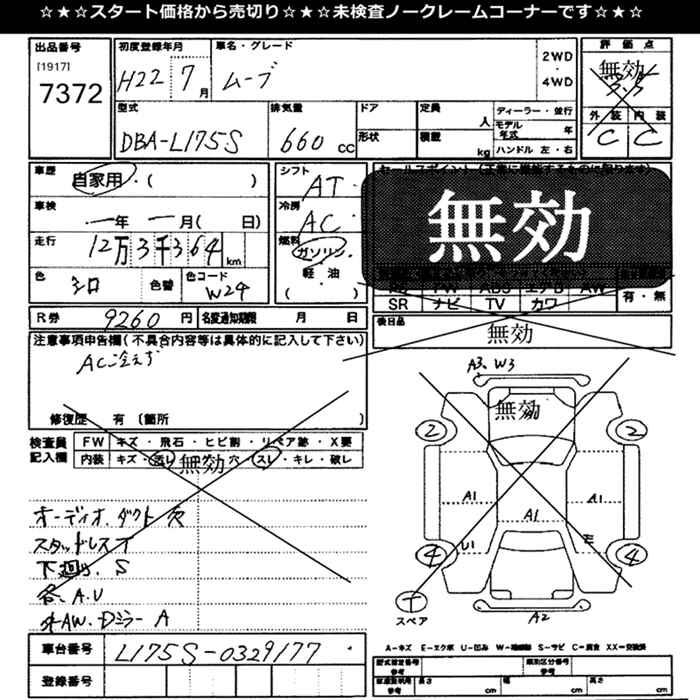 ☆★☆スタート価格から売切り☆★☆未検査ノークレームコーナーです☆★☆
出品番号
[1917]
7372
初度登録年月
H22 7月
車名・グレード
ムーブ
2WD
・
4WD
評価点
無効
型式
DBA-L175S
排気量
660 CC
ドア
形状
定員
人
積載
kg
ディーラー・並行
モデル年式 年
ハンドル 左・右
外装 内装
C C
車歴
自家用・( )
車検
一年 一月( 日)
走行
12万3千364km
色
シロ
色替
色コード
W24
シフト
AT
冷房
AC
燃料
ガソリン・
軽・油
( )
無効
SR ナビ TV カワ
有・無
R券 9260円
名変通知期限 月 日
後日品
無効
注意事項申告欄(不具合内容等は具体的に記入して下さい)
AC冷えず
修復歴 有〔箇所
検査員記入欄
FW キズ・飛石・ヒビ割・リペア跡・X要
内装 キズ・穴・スレ・キレ・破レ
無効
オーディオ.ダクト欠
スタッドレス
下廻り.S
各.A.U
A
車台番号 L175S-0329177
登録番号
A3、W3
無効
2 2
A1 A1 A1
U1
4 4
スペア
A2
A-キズ E-エクボ U-凹み S-サビ
長さ cm 幅 cm 高さ cm